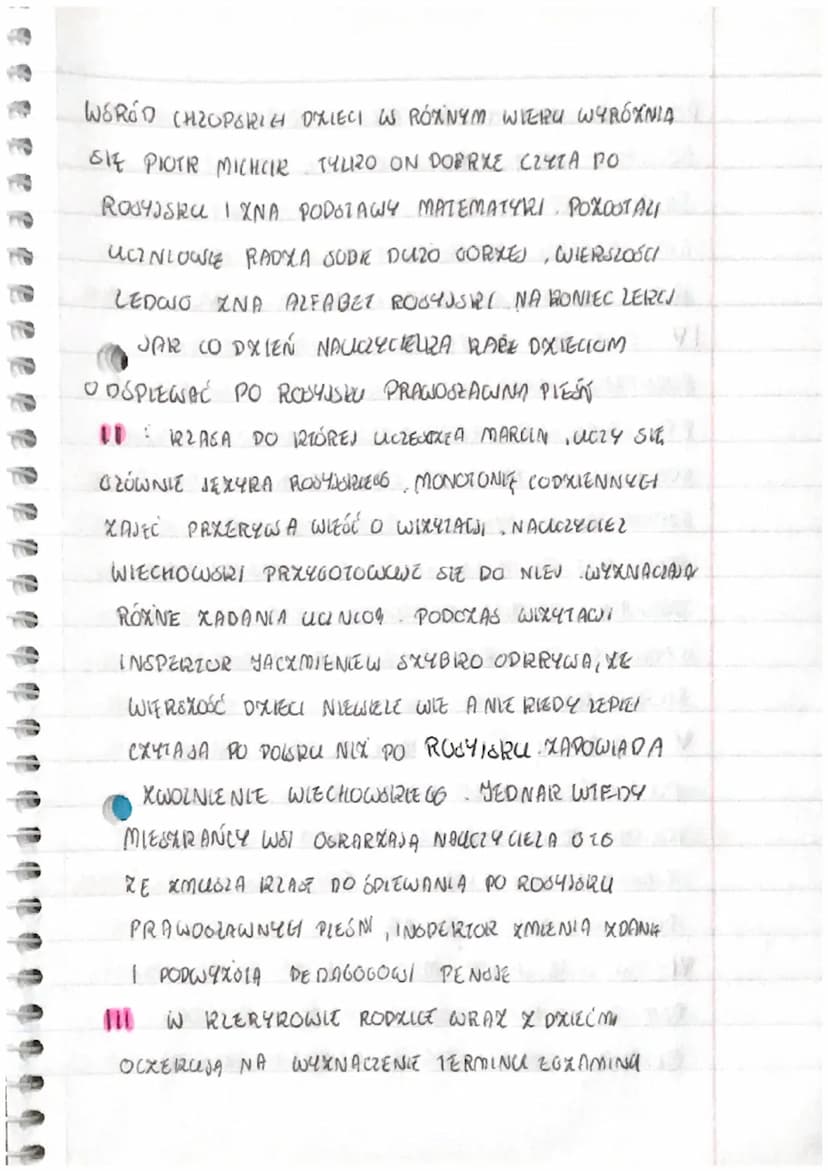 WŚRÓD CHŁOPSKICH DZIECI W RÓŻNYM WIEKU WYRÓŻNIA
SIĘ PIOTR MICHCIK. TYLKO ON DOBRZE CZYTA PO
ROSYJSKU I ZNA PODSTAWY MATEMATYKI. POZOSTALI
UCZNIOWIE RADZĄ SOBIE DUŻO GORZEJ, WIĘKSZOŚCI
LEDWO ZNA ALFABET ROSYJSKI NA KONIEC LEKCJI
JAK CO DZIEŃ NAUCZYCIELKA KAŻE DZIECIOM
ODŚPIEWAĆ PO ROSYJSKU PRAWOSŁAWNĄ PIEŚŃ
II : KLASA DO KTÓREJ UCZĘSZCZA MARCIN, UCZY SIĘ
GŁÓWNIE JĘZYKA ROSYJSKIEGO. MONOTONIĘ CODZIENNYCH
ZAJĘĆ PRZERYWA WIEŚĆ O WIZYTACJI. NAUCZYCIEL
WIECHOWSKI PRZYGOTOWUJE SIĘ DO NIEJ WYZNACZAJĄ
RÓŻNE ZADANIA UCZNIOM. PODCZAS WIZYTACJI
INSPEKTOR JACZMIENIEW SZYBKO ODKRYWA, ŻE
WIĘKSZOŚĆ DZIECI NIEWIELE WIE A NIE KIEDY LEPIEJ
CZYTAJĄ PO POLSKU NIŻ PO ROSYJSKU. ZAPOWIADA
ZWOLNIENIE WIECHOWSKIEGO. JEDNAK WTEDY
MIESZKAŃCY WSI OSKARŻAJĄ NAUCZYCIELA O TO
ŻE ZMUSZA KLASĘ DO ŚPIEWANIA PO ROSYJSKU
PRAWOSŁAWNYCH PIEŚNI, INSPEKTOR ZMIENIA ZDANIE
I PODWYŻSZA PEDAGOGOWI PENSJE
III W KLERYKOWIE RODZICE WRAZ Z DZIEĆMI
OCZEKUJĄ NA WYZNACZENIE TERMINU EGZAMINU